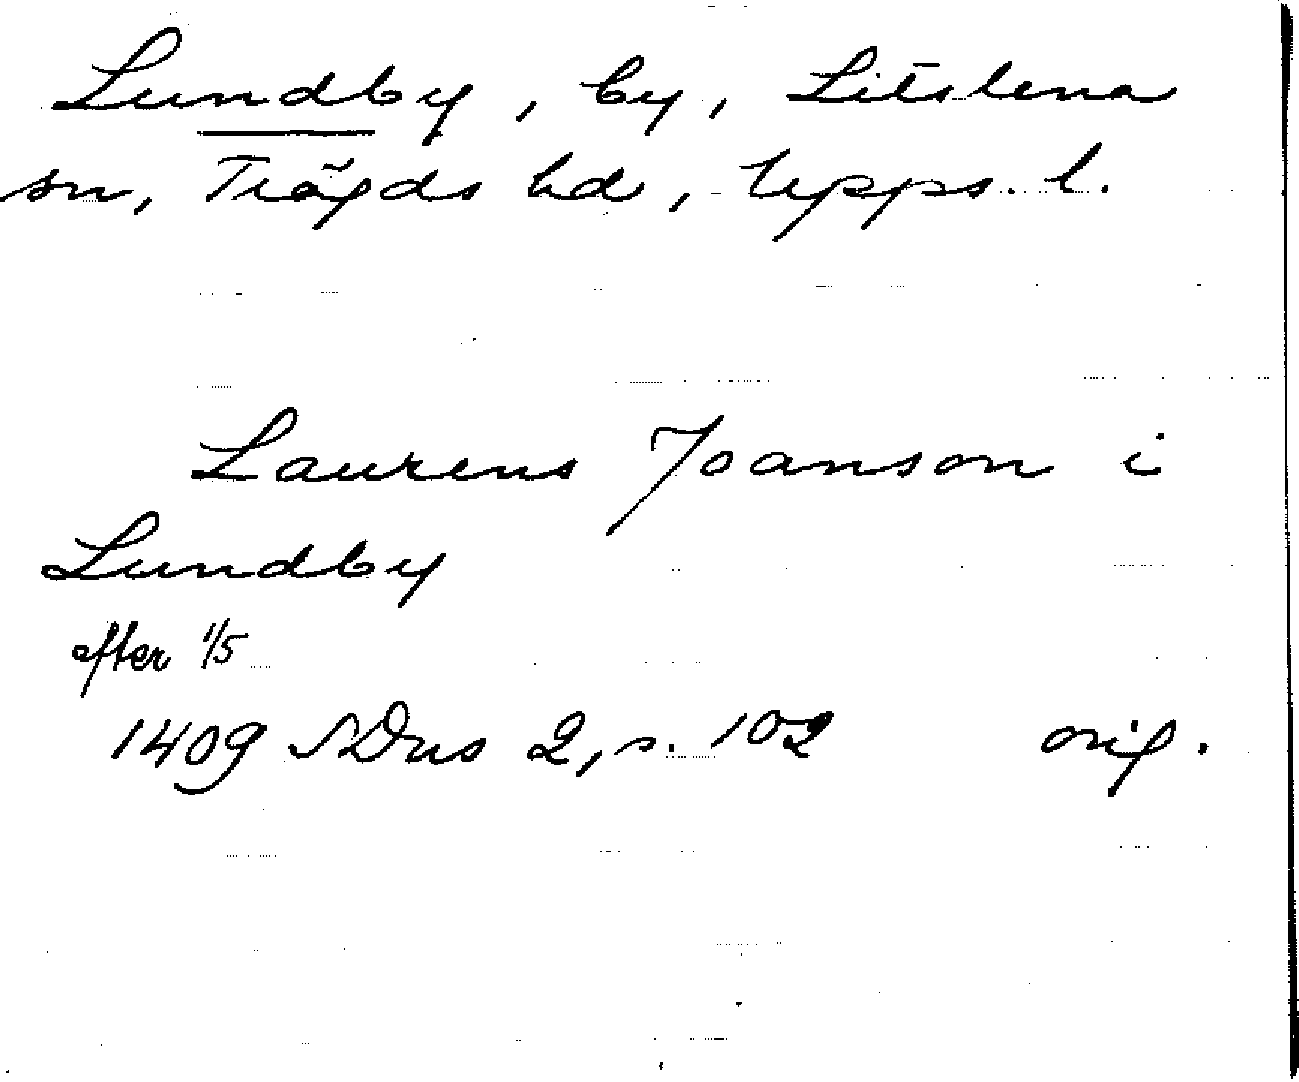 Lundby, by, Litslena
sn, Trögds hd, Upps. l.
Laurens Joanson i
Lundby
efter 1/5
1409 SDns 2, s. 102 orig.